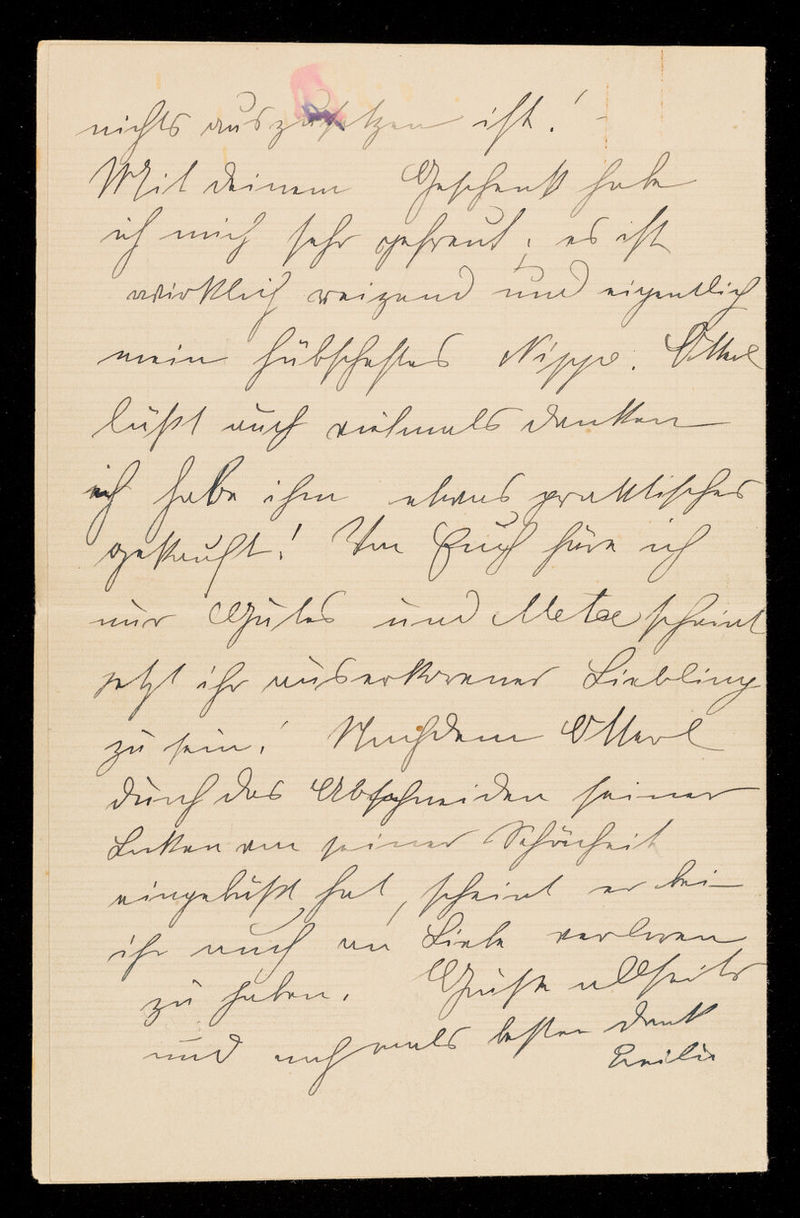 nichts auszusetzen ist! -
Mit deinem Geschenk habe
ich mich sehr gefreut; es ist
wirklich reizend und eigentlich
mein hübschestes Nippe. Otterl
läßt auch vielmals danken
ich habe ihm etwas praktisches
gekauft! Von Euch höre ich
nur Gutes und Meta scheint
jetzt ihr auserkorener Liebling
zu sein! Nachdem Otterl
durch das Abschneiden seiner
Locken von seiner Schönheit
eingebüßt hat, scheint er bei
ihr auch an Liebe verloren
zu haben. Grüße allseits
und nochmals besten Dank
Emilie